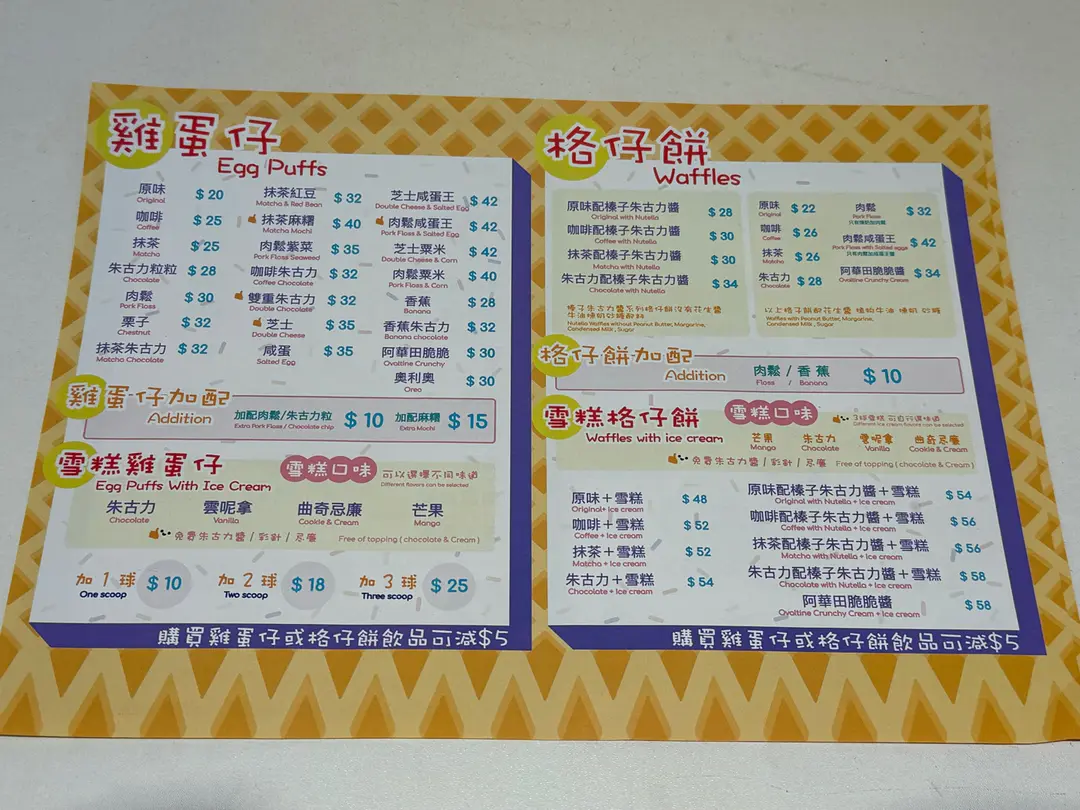 雞蛋仔
Egg Puffs
原味 $ 20
Original
咖啡 $ 25
Coffee
抹茶 $ 25
Matcha
朱古力粒粒 $ 28
Chocolate
肉鬆 $ 30
Pork Floss
栗子 $ 32
Chestnut
抹茶朱古力 $ 32
Matcha Chocolate
抹茶紅豆 $ 32
Matcha & Red Bean
抹茶麻糬 $ 40
Matcha Mochi
肉鬆紫菜 $ 35
Pork Floss Seaweed
咖啡朱古力 $ 32
Coffee Chocolate
雙重朱古力 $ 32
Double Chocolate
芝士 $ 35
Double Cheese
咸蛋 $ 35
Salted Egg
芝士咸蛋王 $ 42
Double Cheese & Salted Egg
肉鬆咸蛋王 $ 42
Pork Floss & Salted Egg
芝士粟米 $ 42
Double Cheese & Corn
肉鬆粟米 $ 40
Pork Floss & Corn
香蕉 $ 28
Banana
香蕉朱古力 $ 32
Banana chocolate
阿華田脆脆 $ 30
Ovaltine Crunchy
奧利奧 $ 30
Oreo
雞蛋仔加配
Addition
加配肉鬆/朱古力粒 $ 10 加配麻糬 $ 15
Extra Pork Floss / Chocolate chip Extra Mochi
雪糕雞蛋仔
Egg Puffs With Ice Cream
雪糕口味 可以選擇不同味道
Different flavors can be selected
朱古力 雲呢拿 曲奇忌廉 芒果
Chocolate Vanilla Cookie & Cream Mango
免費朱古力醬 / 彩針 / 忌廉 Free of topping ( chocolate & Cream )
加 1 球 $ 10 加 2 球 $ 18 加 3 球 $ 25
One scoop Two scoop Three scoop
購買雞蛋仔或格仔餅飲品可減$5
格仔餅
Waffles
原味配榛子朱古力醬 $ 28
Original with Nutella
咖啡配榛子朱古力醬 $ 30
Coffee with Nutella
抹茶配榛子朱古力醬 $ 30
Matcha with Nutella
朱古力配榛子朱古力醬 $ 34
Chocolate with Nutella
榛子朱古力醬系列格仔餅沒有花生醬
牛油煉奶砂糖配料
Nutella Waffles without Peanut Butter, Margarine,
Condensed Milk , Sugar
原味 $ 22
Original
咖啡 $ 26
Coffee
抹茶 $ 26
Matcha
朱古力 $ 28
Chocolate
肉鬆 $ 32
Pork Floss
肉鬆咸蛋王 $ 42
Pork Floss with Salted eggs
阿華田脆脆醬 $ 34
Ovaltine Crunchy Cream
Waffles with Peanut Butter, Margarine,
Condensed Milk , Sugar
格仔餅加配
Addition
肉鬆 / 香蕉 $ 10
Floss / Banana
雪糕格仔餅
Waffles with ice cream
雪糕口味 3球雪糕可自行選味道
Different ice cream flavors can be selected
芒果 朱古力 雲呢拿 曲奇忌廉
Mango Chocolate Vanilla Cookie & Cream
免費朱古力醬 / 彩針 / 忌廉 Free of topping ( chocolate & Cream )
原味+雪糕 $ 48
Original+ ice cream
咖啡+雪糕 $ 52
Coffee + Ice cream
抹茶+雪糕 $ 52
Matcha + Ice cream
朱古力+雪糕 $ 54
Chocolate + Ice cream
原味配榛子朱古力醬+雪糕 $ 54
Original with Nutella + Ice cream
咖啡配榛子朱古力醬+雪糕 $ 56
Coffee with Nutella + Ice cream
抹茶配榛子朱古力醬+雪糕 $ 56
Matcha with Nutella + Ice cream
朱古力配榛子朱古力醬+雪糕 $ 58
Chocolate with Nutella + Ice cream
阿華田脆脆醬 $ 58
Ovaltine Crunchy Cream + Ice cream
購買雞蛋仔或格仔餅飲品可減$5